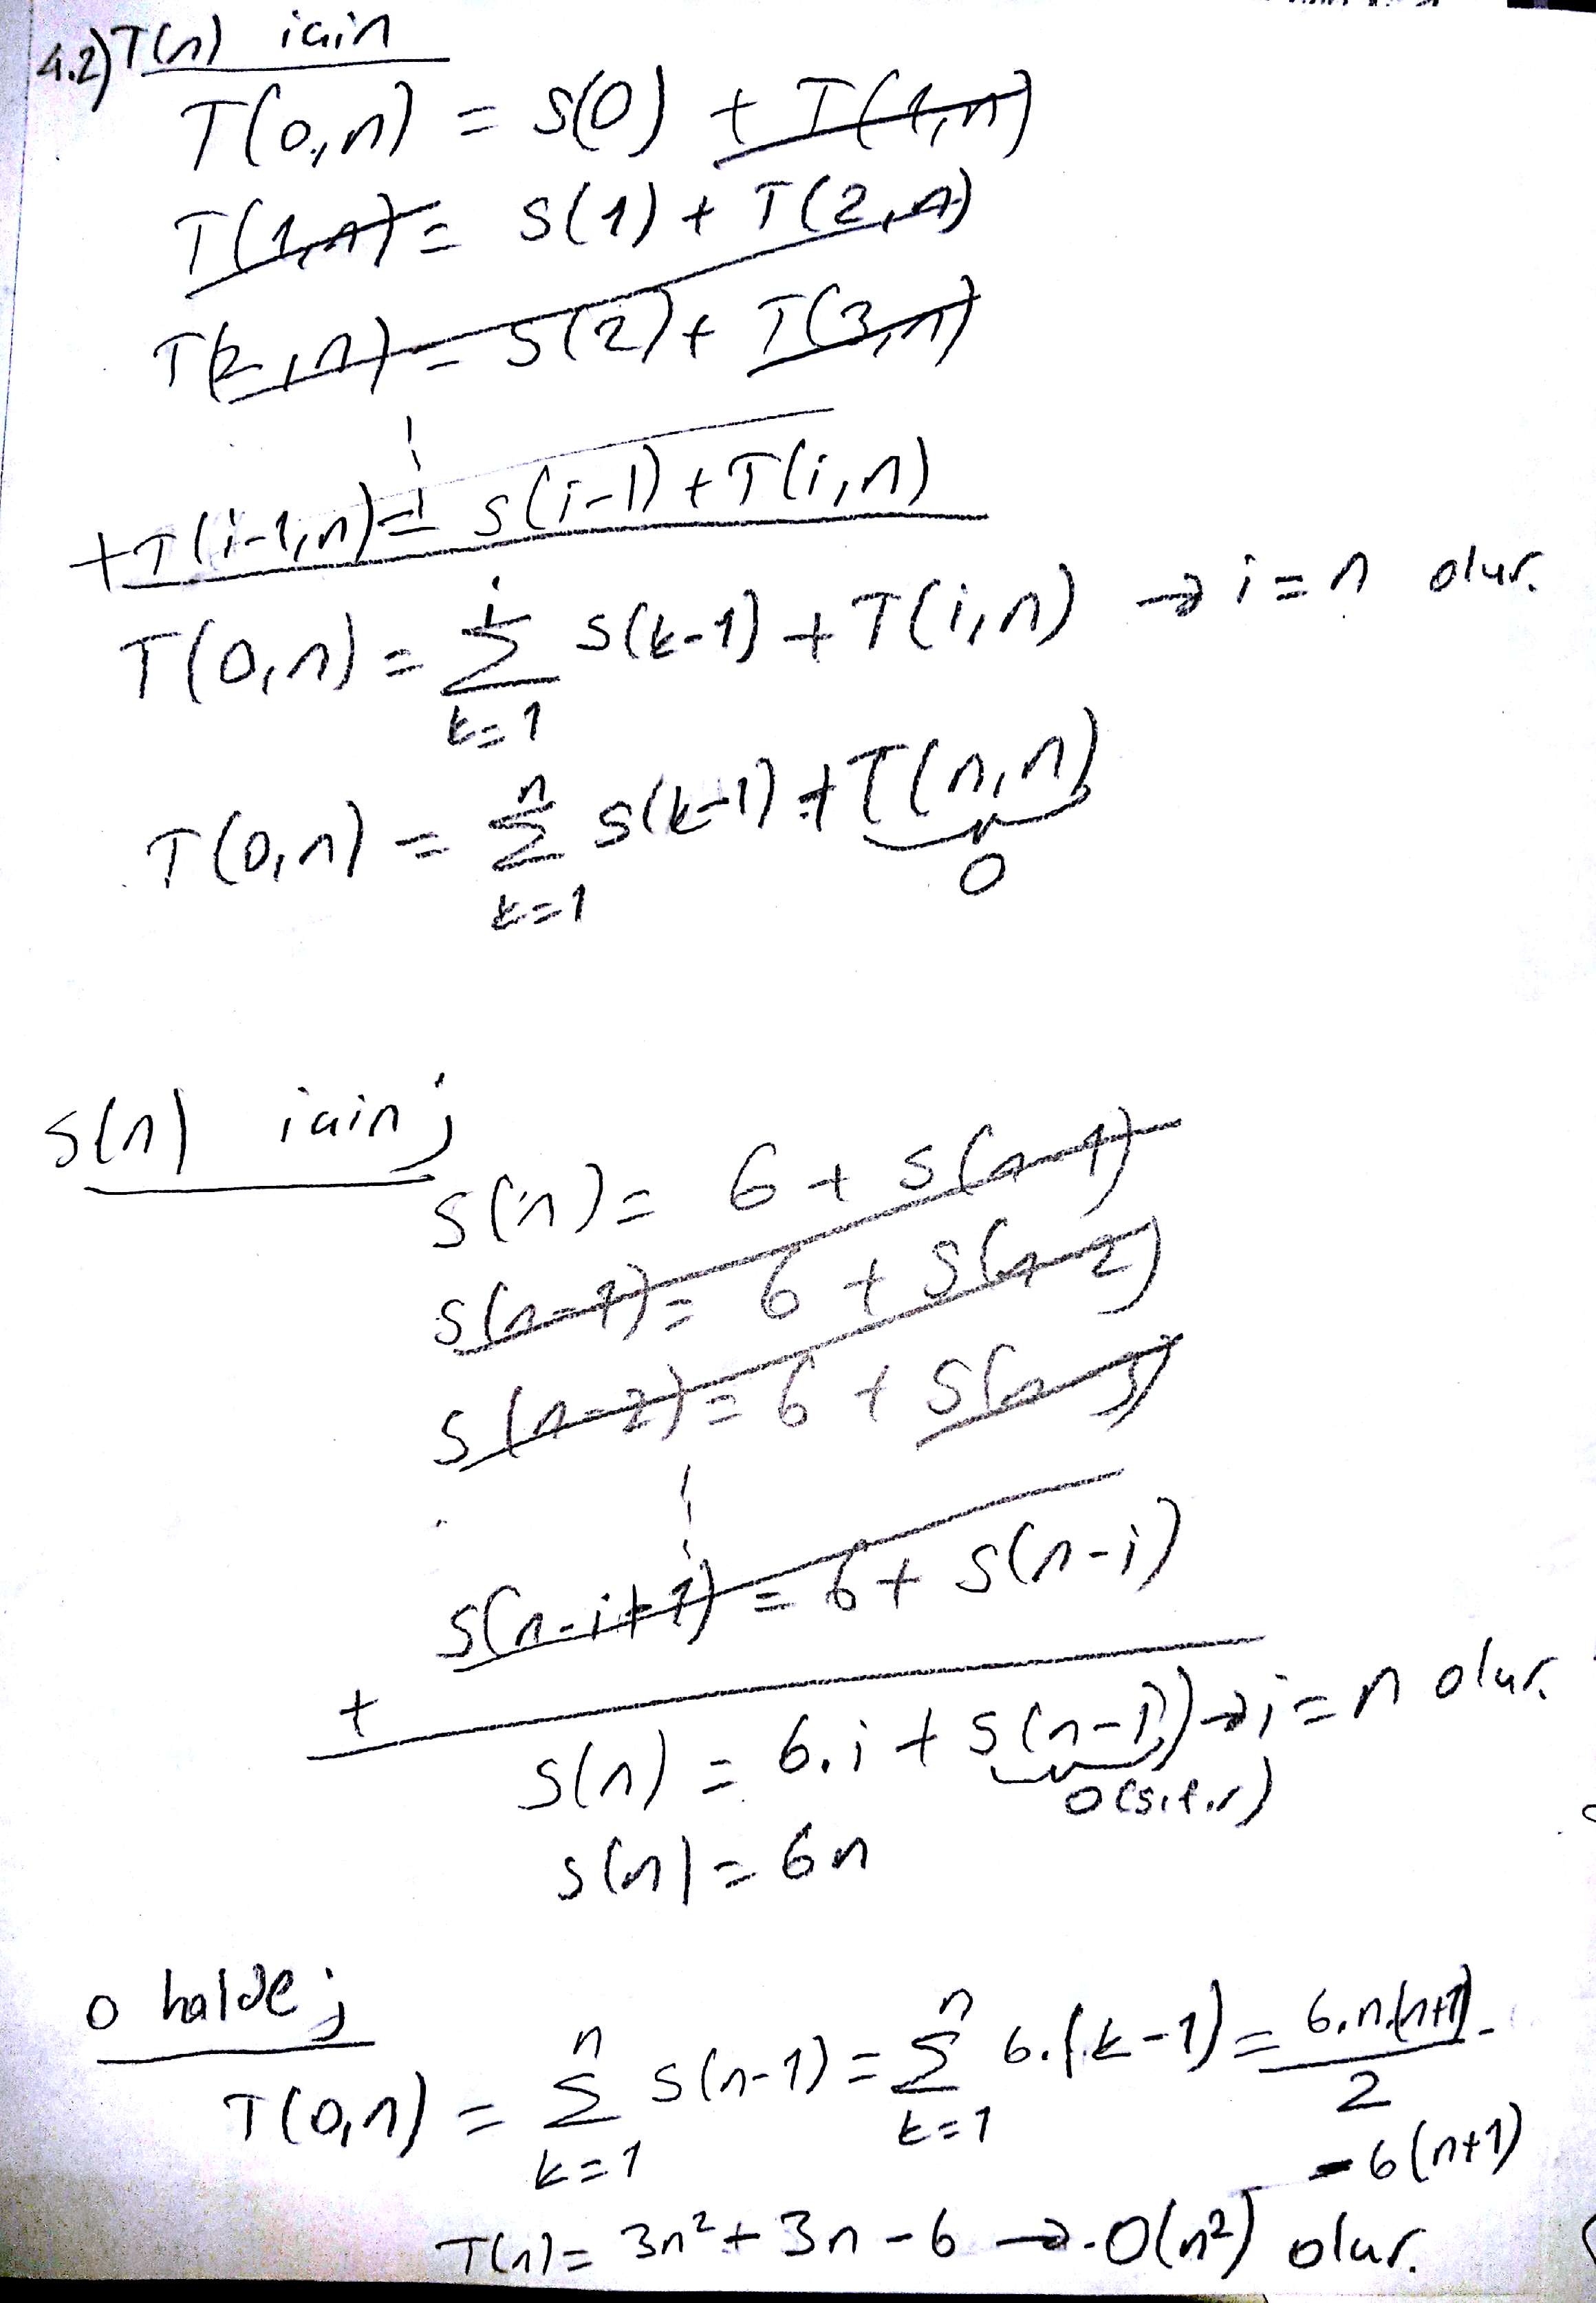 4.2) T(n) için
T(0,n) = S(0) + T(1,n)
T(1,n) = S(1) + T(2,n)
T(2,n) = S(2) + T(3,n)
⋮
+ T(i-1,n) = S(i-1) + T(i,n)
T(0,n) = Σ_{k=1}^{i} S(k-1) + T(i,n) → i = n olur.
T(0,n) = Σ_{k=1}^{n} S(k-1) + T(n,n)
0
S(n) için;
S(n) = 6 + S(n-1)
S(n-1) = 6 + S(n-2)
S(n-2) = 6 + S(n-3)
⋮
S(n-i+1) = 6 + S(n-i)
+
S(n) = 6.i + S(n-i) → i = n olur.
0 (sıfır)
S(n) = 6n
o halde;
T(0,n) = Σ_{k=1}^{n} S(n-1) = Σ_{k=1}^{n} 6.(k-1) = 6.n.(n+1)/2 -
- 6(n+1)
T(n) = 3n² + 3n - 6 → O(n²) olur.